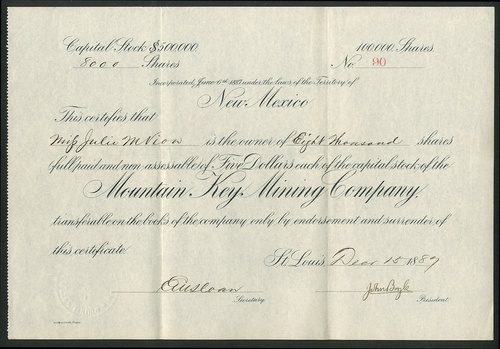 Capital Stock $500,000. 100,000 Shares.
8000 Shares No 90
Incorporated, June 6th 1887, under the laws of the Territory of
New Mexico
This certifies that
Miss Julie is the owner of Eight Thousand shares
full paid and non-assessable of Five Dollars each of the capital stock of the
Mountain Key Mining Company,
transferable on the books of the company only by endorsement and surrender of
this certificate.
St. Louis, Decr 15 1887
Secretary. John Boyle
President.